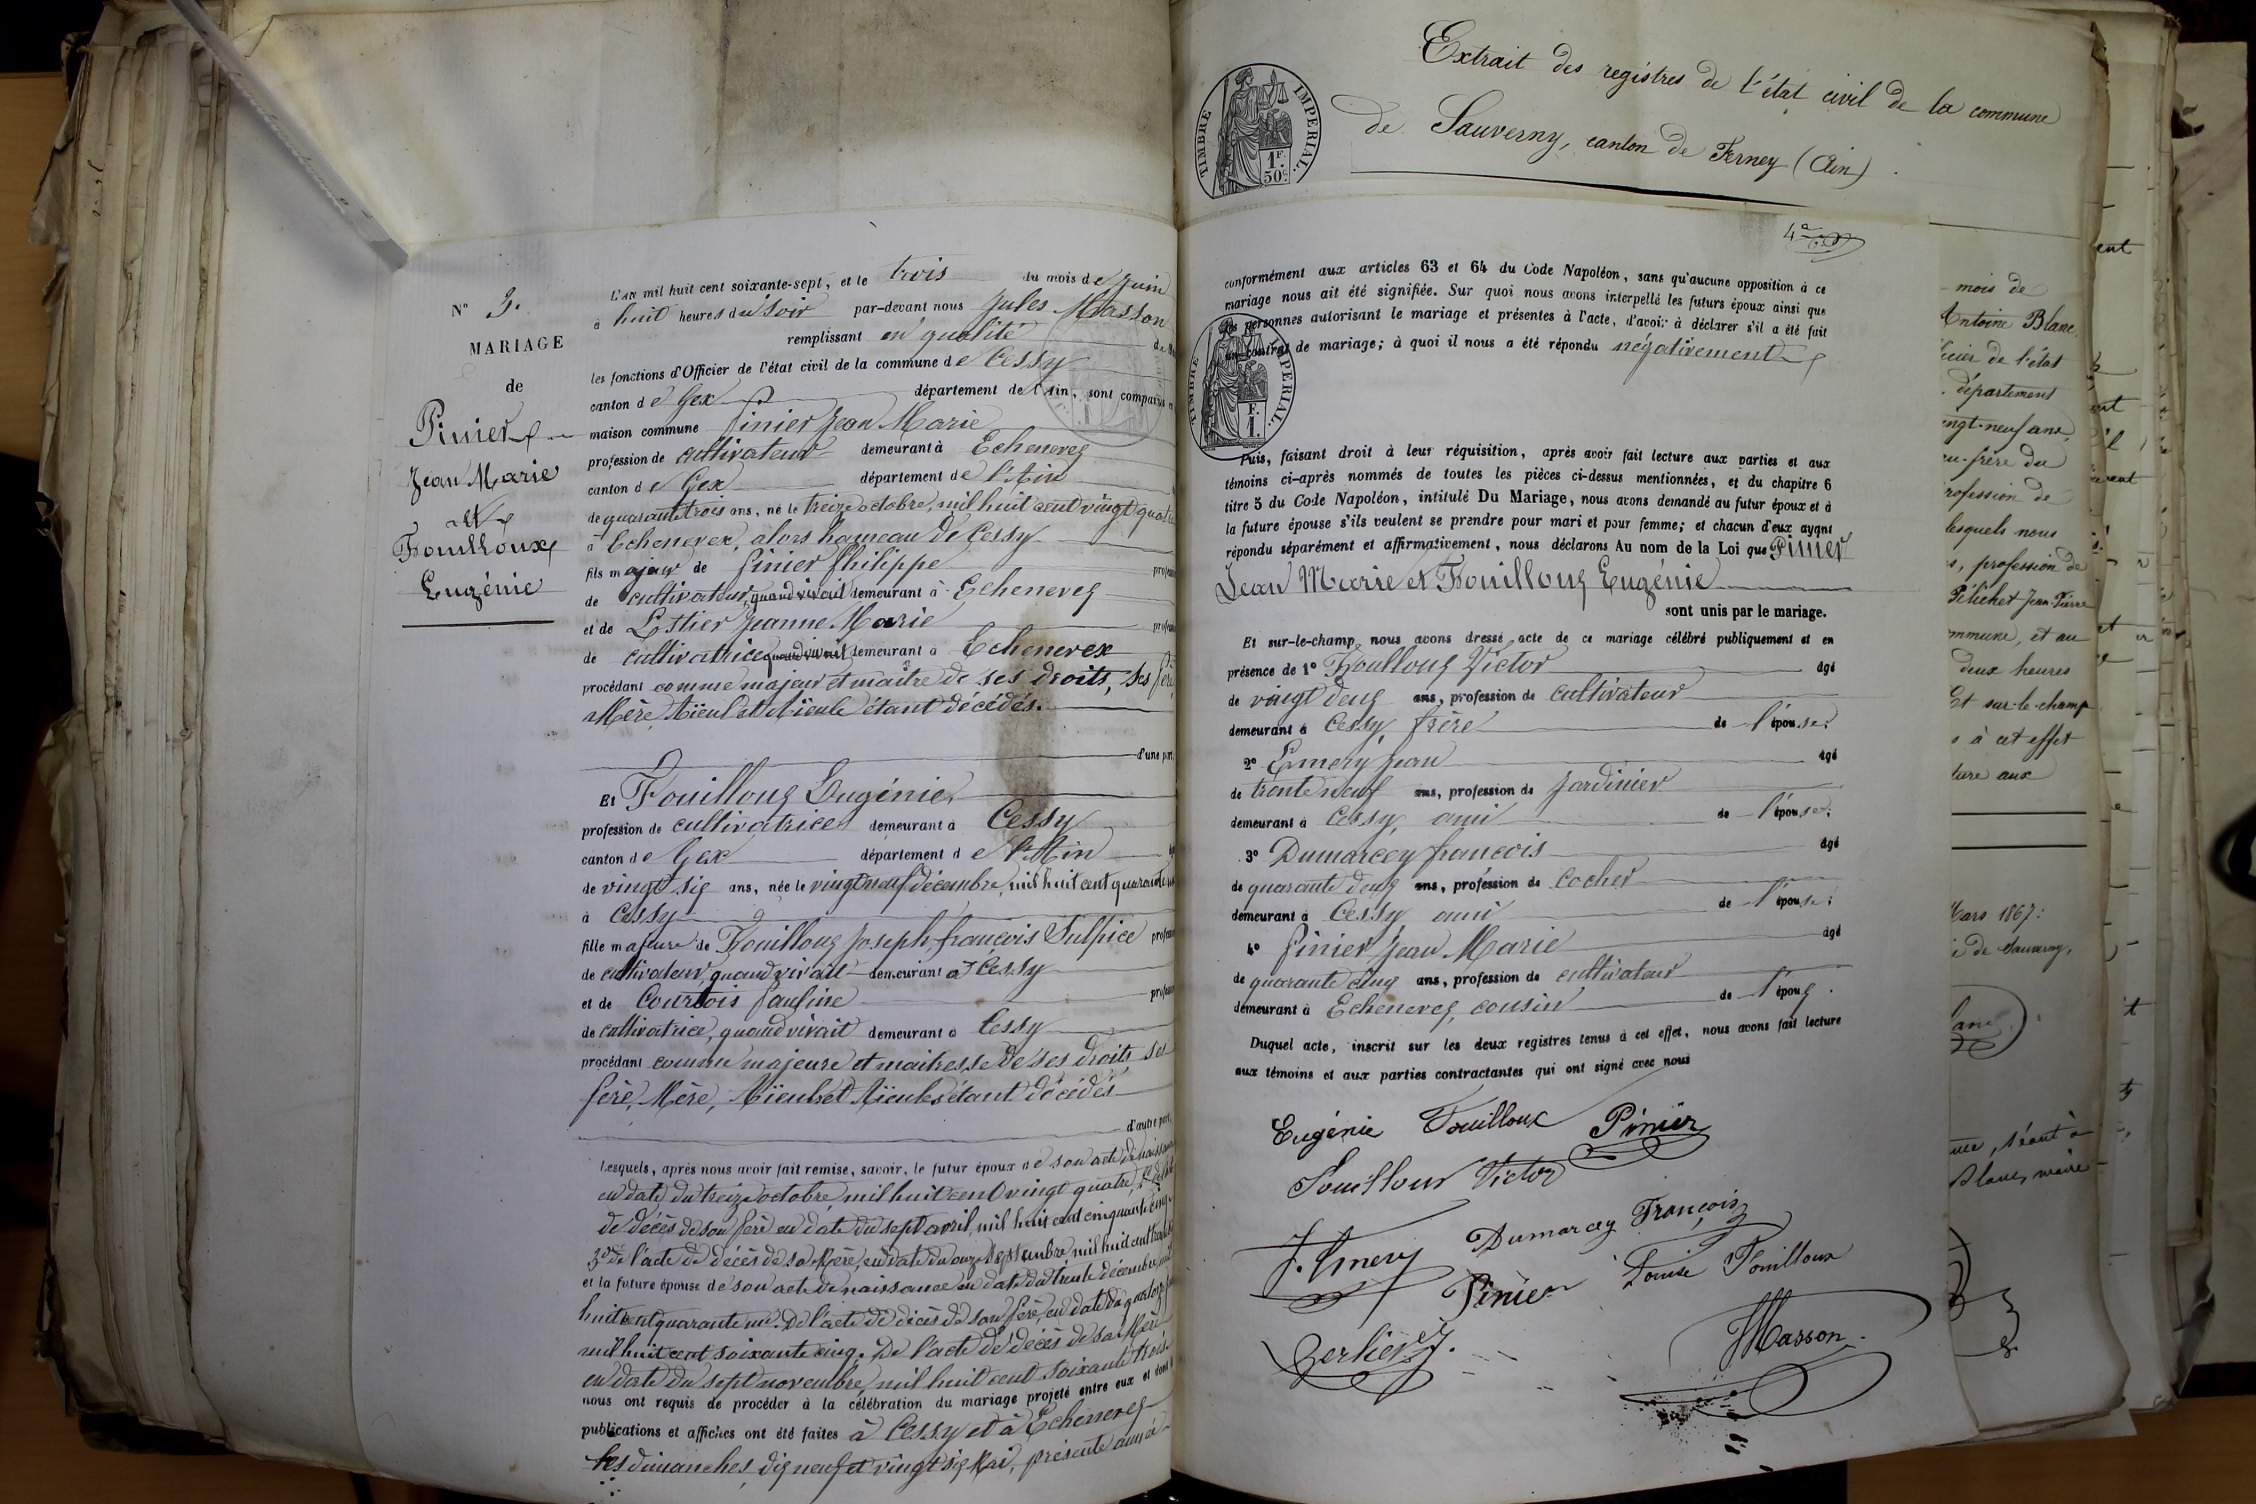 Nº 3.
MARIAGE
de
Pinier
Jean Marie
et
Fouilloux
Eugénie
L'an mil huit cent soixante-sept, et le trois du mois de Juin
à huit heures du soir par-devant nous Jules Masson
remplissant en qualité de
les fonctions d'Officier de l'état civil de la commune de Cessy
canton de Gex département de l'Ain, sont comparus
maison commune Pinier Jean Marie
profession de cultivateur demeurant à Echenevex
canton de Gex département de l'Ain
de quarante trois ans, né le treize octobre, mil huit cent vingt quatre
à Echenevex, alors hameau de Cessy
fils majeur de Pinier Philippe
de cultivateur, quand vivait demeurant à Echenevex
et de Lostier Jeanne Marie
de cultivatrice quand vivait demeurant à Echenevex
procédant comme majeur et maître de ses droits, ses Père
Mère, Aïeul et Aïeule étant décédés.
d'une part,
Et Fouilloux Eugénie
profession de cultivatrice demeurant à Cessy
canton de Gex département de l'Ain
de vingt six ans, née le vingt neuf décembre, mil huit cent quarante
à Cessy
fille majeure de Fouilloux Joseph françois Sulpice
de cultivateur, quand vivait demeurant à Cessy
et de Courtois Pauline
de cultivatrice, quand vivait demeurant à Cessy
procédant comme majeure et maitresse de ses droits ses
Père, Mère, Aïeuls et Aïeules étant décédés
d'autre part,
Lesquels, après nous avoir fait remise, savoir, le futur époux de son acte de naissance
en date du treize octobre mil huit cent vingt quatre,
de décès de son Père en date du sept avril, mil huit cent cinquante cinq
3º de l'acte de décès de sa Mère, en date du onze Septembre mil huit cent
et la future épouse de son acte de naissance en date du trente décembre, mil
huit cent quarante un. De l'acte de décès de son Père, en date du quatorze
mil huit cent soixante cinq. De l'acte de décès de sa Mère
en date du sept novembre, mil huit cent soixante trois.
nous ont requis de procéder à la célébration du mariage projeté entre eux et dont
publications et affiches ont été faites à Cessy et à Echenevex
les dimanches, dix neuf et vingt six Mai, présente année
Extrait des registres de l'état civil de la commune
de Sauverny, canton de Ferney (Ain)
TIMBRE IMPERIAL.
1F.
50c.
4e
conformément aux articles 63 et 64 du Code Napoléon, sans qu'aucune opposition à ce
mariage nous ait été signifiée. Sur quoi nous avons interpellé les futurs époux ainsi que
les personnes autorisant le mariage et présentes à l'acte, d'avoir à déclarer s'il a été fait
un contrat de mariage; à quoi il nous a été répondu négativement
TIMBRE IMPERIAL.
F.
1.
Puis, faisant droit à leur réquisition, après avoir fait lecture aux parties et aux
témoins ci-après nommés de toutes les pièces ci-dessus mentionnées, et du chapitre 6
titre 5 du Code Napoléon, intitulé Du Mariage, nous avons demandé au futur époux et à
la future épouse s'ils veulent se prendre pour mari et pour femme; et chacun d'eux ayant
répondu séparément et affirmativement, nous déclarons Au nom de la Loi que Pinier
Jean Marie et Fouilloux Eugénie
sont unis par le mariage.
Et sur-le-champ nous avons dressé acte de ce mariage célébré publiquement et en
présence de 1º Fouilloux Victor âgé
de vingt deux ans, profession de cultivateur
demeurant à Cessy, frère de l'épouse;
2º Emery Jean âgé
de trente neuf ans, profession de Jardinier
demeurant à Cessy, ami de l'épouse;
3º Dumarcey françois âgé
de quarante deux ans, profession de Cocher
demeurant à Cessy ami de l'épouse;
4º Pinier Jean Marie âgé
de quarante cinq ans, profession de cultivateur
demeurant à Echenevex, cousin de l'époux.
Duquel acte, inscrit sur les deux registres tenus à cet effet, nous avons fait lecture
aux témoins et aux parties contractantes qui ont signé avec nous
Eugénie Fouilloux Pinier
Fouilloux Victor
J. Emery Dumarcey François
Pinier Louise Fouilloux
JMasson
mois de
Antoine Blanc
officier de l'état
département
vingt-neuf ans,
profession de
lesquels nous
profession de
Pélichet Jean-Pierre
commune, et au
deux heures
Et sur-le-champ
à cet effet
lecture aux
Mars 1867:
de Sauverny,
Blanc, maire